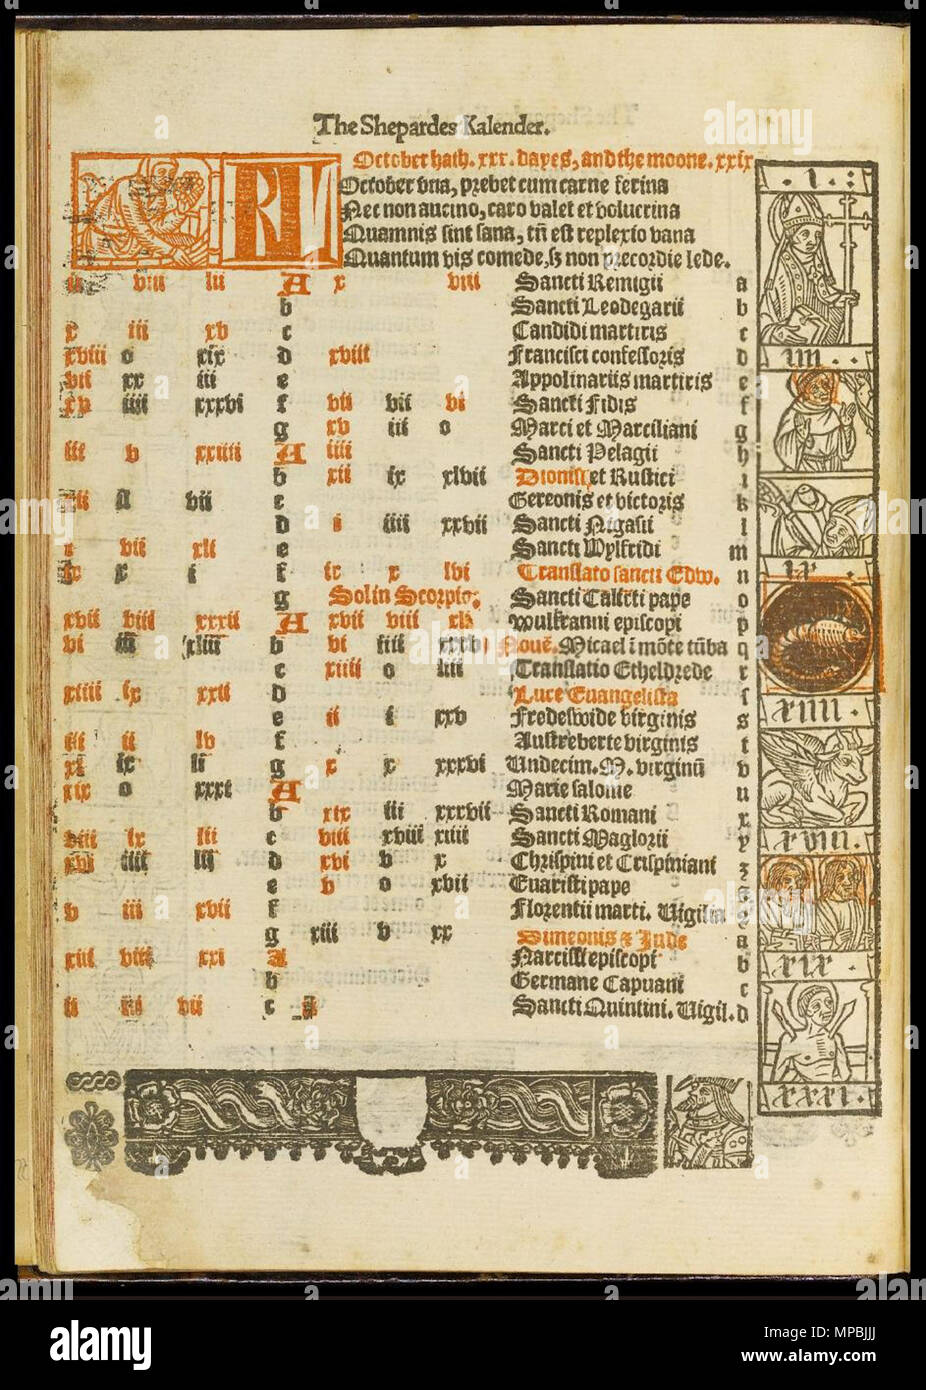 The Shepardes Kalender.
October hath. xxx. dayes, and the moone. xxix
KL
October vna, prebet cum carne ferina
Nec non aucino, caro valet et volucrina
Quamuis sint sana, tn̄ est replexio vana
Quantum vis comede, sȝ non precordie lede.
viii lii A x viii Sancti Remigii a
b Sancti Leodegarii b
x iii xv c Candidi martiris c
xviii o xix d xviii Francisci confessoris d
vii xx iii e Appolinariis martiris e
xv iiii xxxvi f vii vii vi Sancti Fidis f
g xv iii o Marci et Marciliani g
iii v xxiiii A iiii Sancti Pelagii h
b xii ix xlvii Dionisii et Rustici i
vii e Gereonis et victoris k
d i iiii xxvii Sancti Nigasii l
i vii xli e Sancti Wylfridi m
ix x i f ix x lvi Translato sancti Edw. n
g Sol in Scorpio: Sancti Calixti pape o
xvii viii xxxii A xvii viii xli Wulfranni episcopi p
vi iii xliii b vi iiii xxxv Nouē. Micael i mōte tūba q
c xiiii o iiii Translatio Etheldrede r
xiiii ix xxii d Luce Euangelista s
e ii i xxv Fredeswide virginis s
iii ii lv f Austreberte virginis t
xi ix li g x x xxxvi Undecim. M. virginū v
xix o xxxi A Marie salome u
b xix iii xxxvii Sancti Romani x
viii ix lii c viii xviii xiiii Sancti Maglorii y
xvi iiii lii d xvi v x Chrispini et Crispiniani z
e v o xvii Euaristi pape
v iii xvii f Florentii marti. Vigilia
g xiii v xx Simeonis & Jude a
xiii viii xxi A Narcissi episcopi b
b Germane Capuani c
ii iii vii c Sancti Quintini. Vigil. d
. I . :
IIII . .
IX .
XIIII .
XVIII .
XIX .
XXXI .
alamy
Image ID: MPBJJJ
www.alamy.com